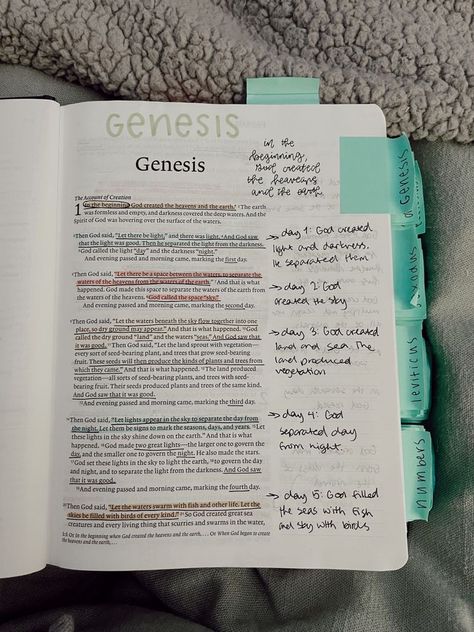 Genesis
Genesis
in the
beginning,
God created
the heavens
and the earth.
The Account of Creation
1 In the beginning God created the heavens and the earth. 2 The earth
was formless and empty, and darkness covered the deep waters. And the
Spirit of God was hovering over the surface of the waters.
3 Then God said, "Let there be light," and there was light. 4 And God saw
that the light was good. Then he separated the light from the darkness.
5 God called the light "day" and the darkness "night."
And evening passed and morning came, marking the first day.
6 Then God said, "Let there be a space between the waters, to separate the
waters of the heavens from the waters of the earth." 7 And that is what
happened. God made this space to separate the waters of the earth from
the waters of the heavens. 8 God called the space "sky."
And evening passed and morning came, marking the second day.
9 Then God said, "Let the waters beneath the sky flow together into one
place, so dry ground may appear." And that is what happened. 10 God
called the dry ground "land" and the waters "seas." And God saw that
it was good. 11 Then God said, "Let the land sprout with vegetation—
every sort of seed-bearing plant, and trees that grow seed-bearing
fruit. These seeds will then produce the kinds of plants and trees from
which they came." And that is what happened. 12 The land produced
vegetation—all sorts of seed-bearing plants, and trees with seed-
bearing fruit. Their seeds produced plants and trees of the same kind.
And God saw that it was good.
13 And evening passed and morning came, marking the third day.
14 Then God said, "Let lights appear in the sky to separate the day from
the night. Let them be signs to mark the seasons, days, and years. 15 Let
these lights in the sky shine down on the earth." And that is what
happened. 16 God made two great lights—the larger one to govern the
day, and the smaller one to govern the night. He also made the stars.
17 God set these lights in the sky to light the earth, 18 to govern the day
and night, and to separate the light from the darkness. And God saw
that it was good.
19 And evening passed and morning came, marking the fourth day.
20 Then God said, "Let the waters swarm with fish and other life. Let the
skies be filled with birds of every kind." 21 So God created great sea
creatures and every living thing that scurries and swarms in the water,
1:1 Or In the beginning when God created the heavens and the earth, . . . Or When God began to create
the heavens and the earth, . . .
→ day 1: God created
light and darkness.
He separated them
→ day 2: God
created the sky
→ day 3: God created
land and sea. The
land produced
vegetation
→ day 4: God
separated day
from night.
→ day 5: God filled
the seas with fish
and sky with birds
Genesis
exodus
leviticus
numbers